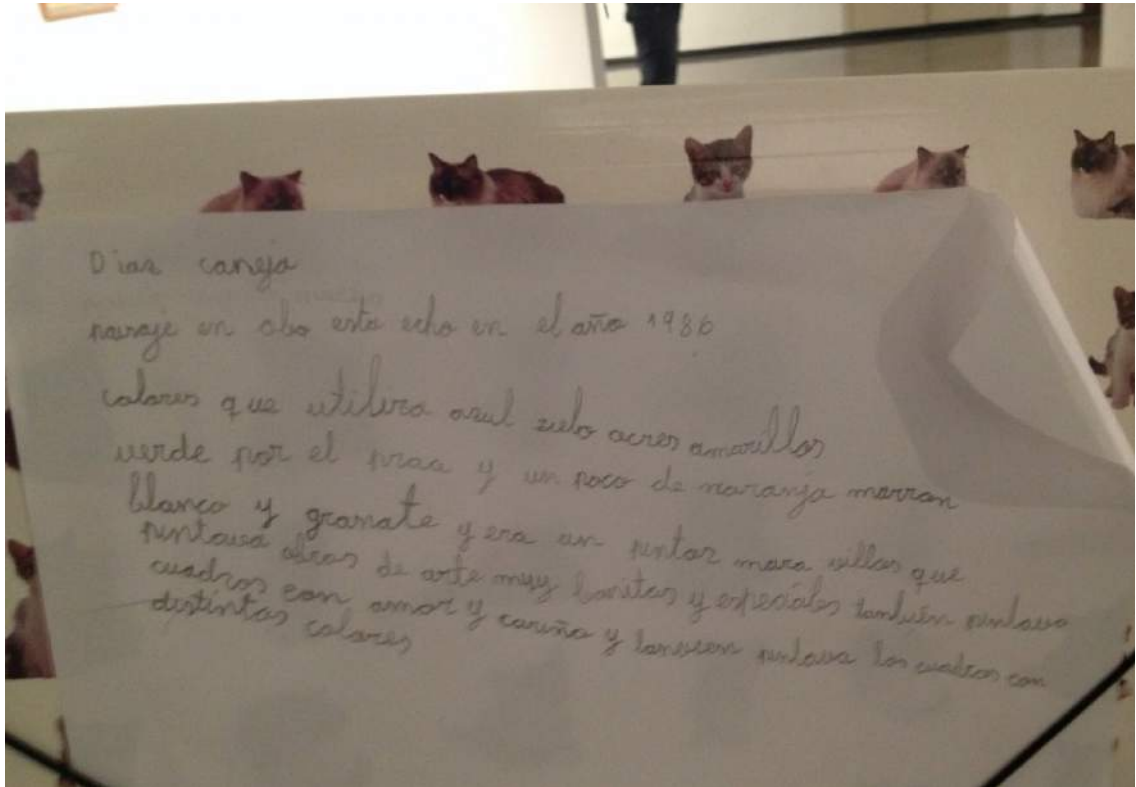 Dias caneja
paisaje en olbo esta echo en el año 1986
colores que utiliza azul zielo acres amarillos
verde por el praa y un poco de naranja marron
blanco y granate y era un pintor mara villos que
pintava obras de arte muy bonitas y especiales tanbien pintava
cuadros con amor y cariño y tanvien pintava los cuadros con
distintos colores